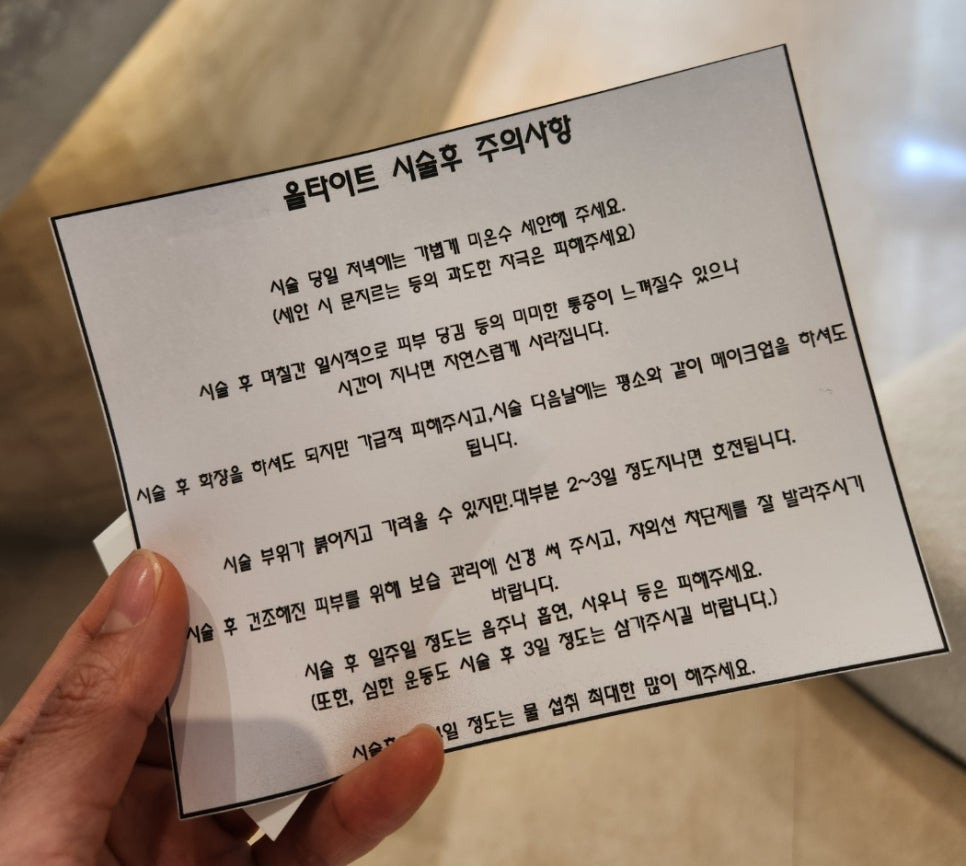 올타이트 시술후 주의사항
시술 당일 저녁에는 가볍게 미온수 세안해 주세요.
(세안 시 문지르는 등의 과도한 자극은 피해주세요)
시술 후 며칠간 일시적으로 피부 당김 등의 미미한 통증이 느껴질수 있으나
시간이 지나면 자연스럽게 사라집니다.
시술 후 화장을 하셔도 되지만 가급적 피해주시고,시술 다음날에는 평소와 같이 메이크업을 하셔도
됩니다.
시술 부위가 붉어지고 가려울 수 있지만.대부분 2~3일 정도지나면 호전됩니다.
시술 후 건조해진 피부를 위해 보습 관리에 신경 써 주시고, 자외선 차단제를 잘 발라주시기
바랍니다.
시술 후 일주일 정도는 음주나 흡연, 사우나 등은 피해주세요.
(또한, 심한 운동도 시술 후 3일 정도는 삼가주시길 바랍니다.)
시술후 정도는 물 섭취 최대한 많이 해주세요.